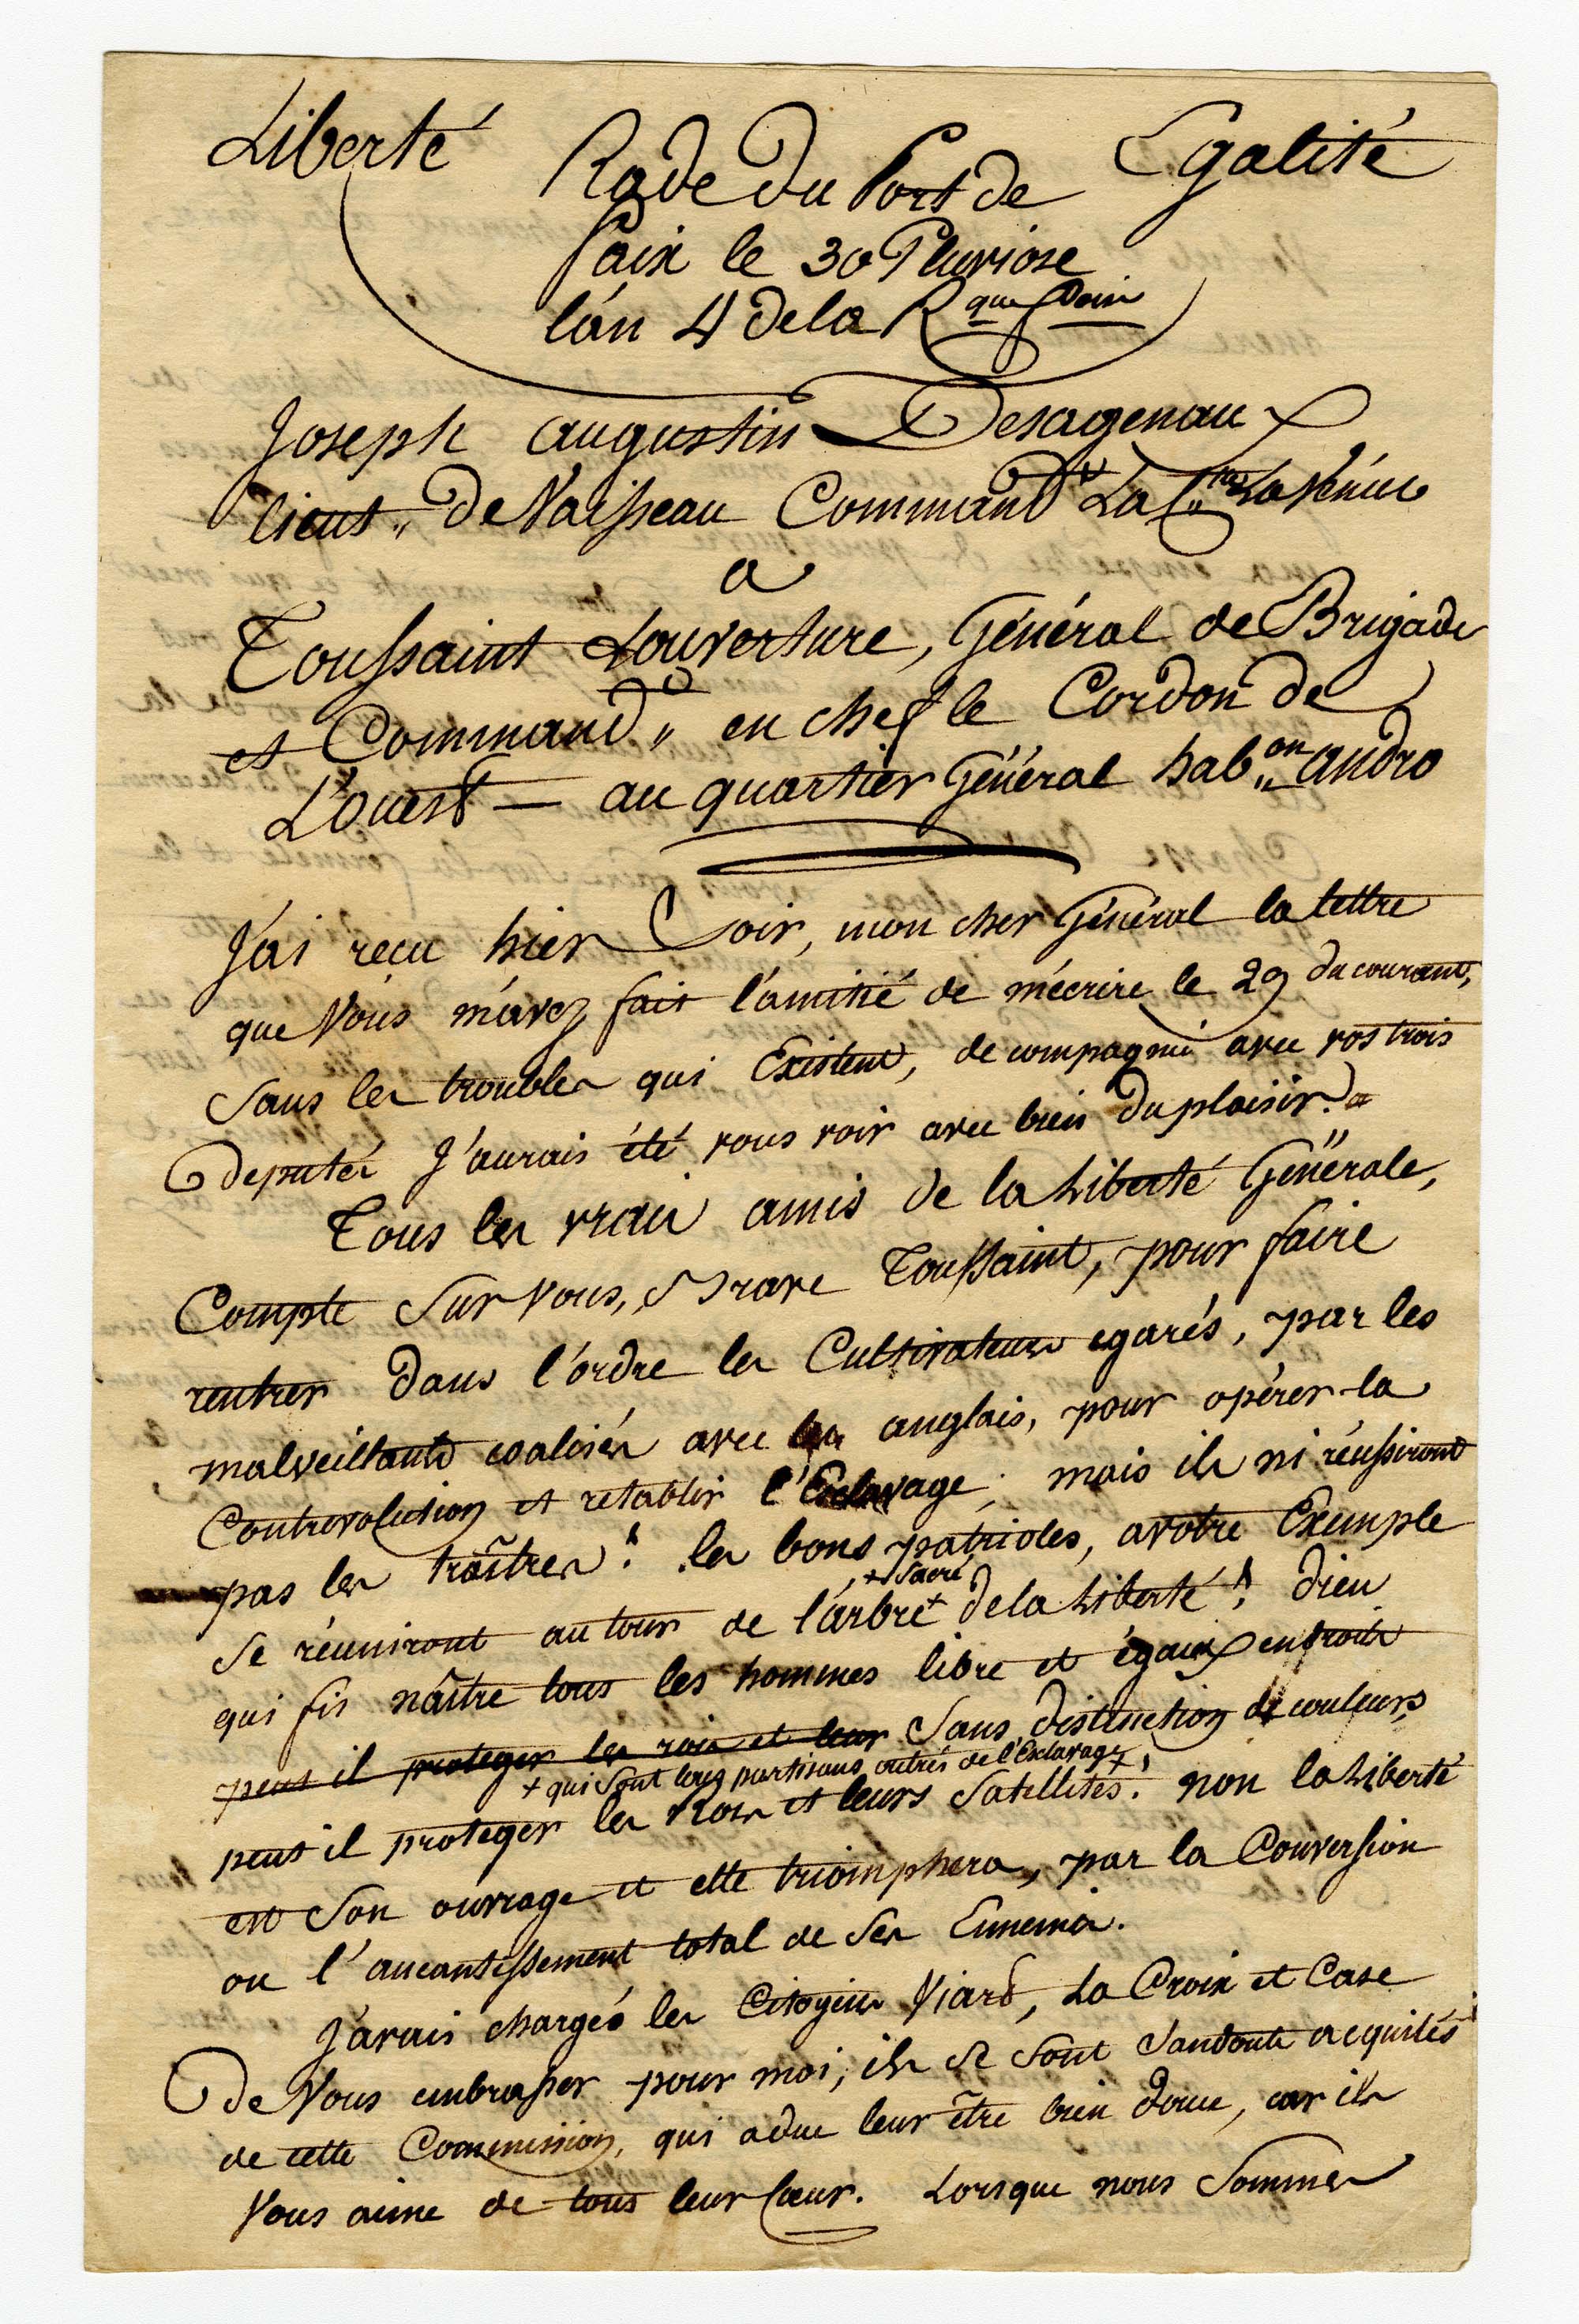 Liberté Egalité
Rade du Port de
Paix le 30 Pluviose
l'an 4 de la Rque
Joseph augustin Desagenaux
lieut,, de Vaisseau Command La Venus
a
Toussaint Louverture, Général de Brigade
et Command,, en chef le Cordon de
L'ouest — au quartier Général habon andro
J'ai recu hier Soir, mon cher Général la lettre
que Vous m'avez fait l'amitié de m'écrire le 29 du courant,
Sans les troubles qui Existent, de compagnie avec vos trois
deputés J'aurais été vous voir avec bien du plaisir.
Tous les vrais amis de la Liberté Générale,
Compte Sur Vous, Brave Toussaint, pour faire
rentrer dans l'ordre les Cultivateurs egarés, par les
malveillants coalisés avec les anglais, pour opérer la
Contrevolution et retablir l'Esclavage; mais ils ni réussiront
pas les traîtres! les bons patriotes, a votre Exemple
+ Sacré
Se réuniront autour de l'arbre+ de la Liberté! dieu
qui fis naître tous les hommes libre et égaux en droits
peut il proteger les rois et leur Sans distinction de couleurs
+ qui Sont tous partisans outrés de l'Esclavage
peut il proteger les Rois et leurs Satellites+! non la Liberté
est Son ouvrage et elle triomphera, par la Conversion
ou l'aneantissement total de Ses Ennemis.
J'avais chargés les Citoyens Viard, La Croix et Case
de Vous embrasser pour moi; ils se Sont Sandoute acquités
de cette Commission, qui a due leur être bien douce, car ils
Vous aime de tous leur Cœur. Lorsque nous Sommes